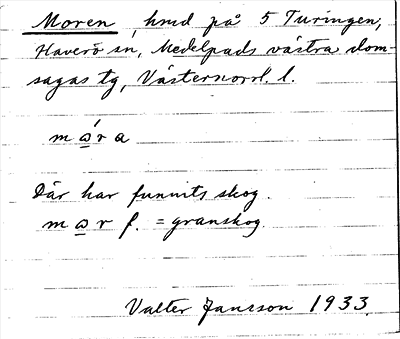 Moren, hmd på 5 Turingen,
Haverö sn, Medelpads västra dom-
sagas tg, Västernorrl. l.
mɷ́ra
Där har funnits skog.
mɷr f. = granskog.
Valter Jansson 1933.